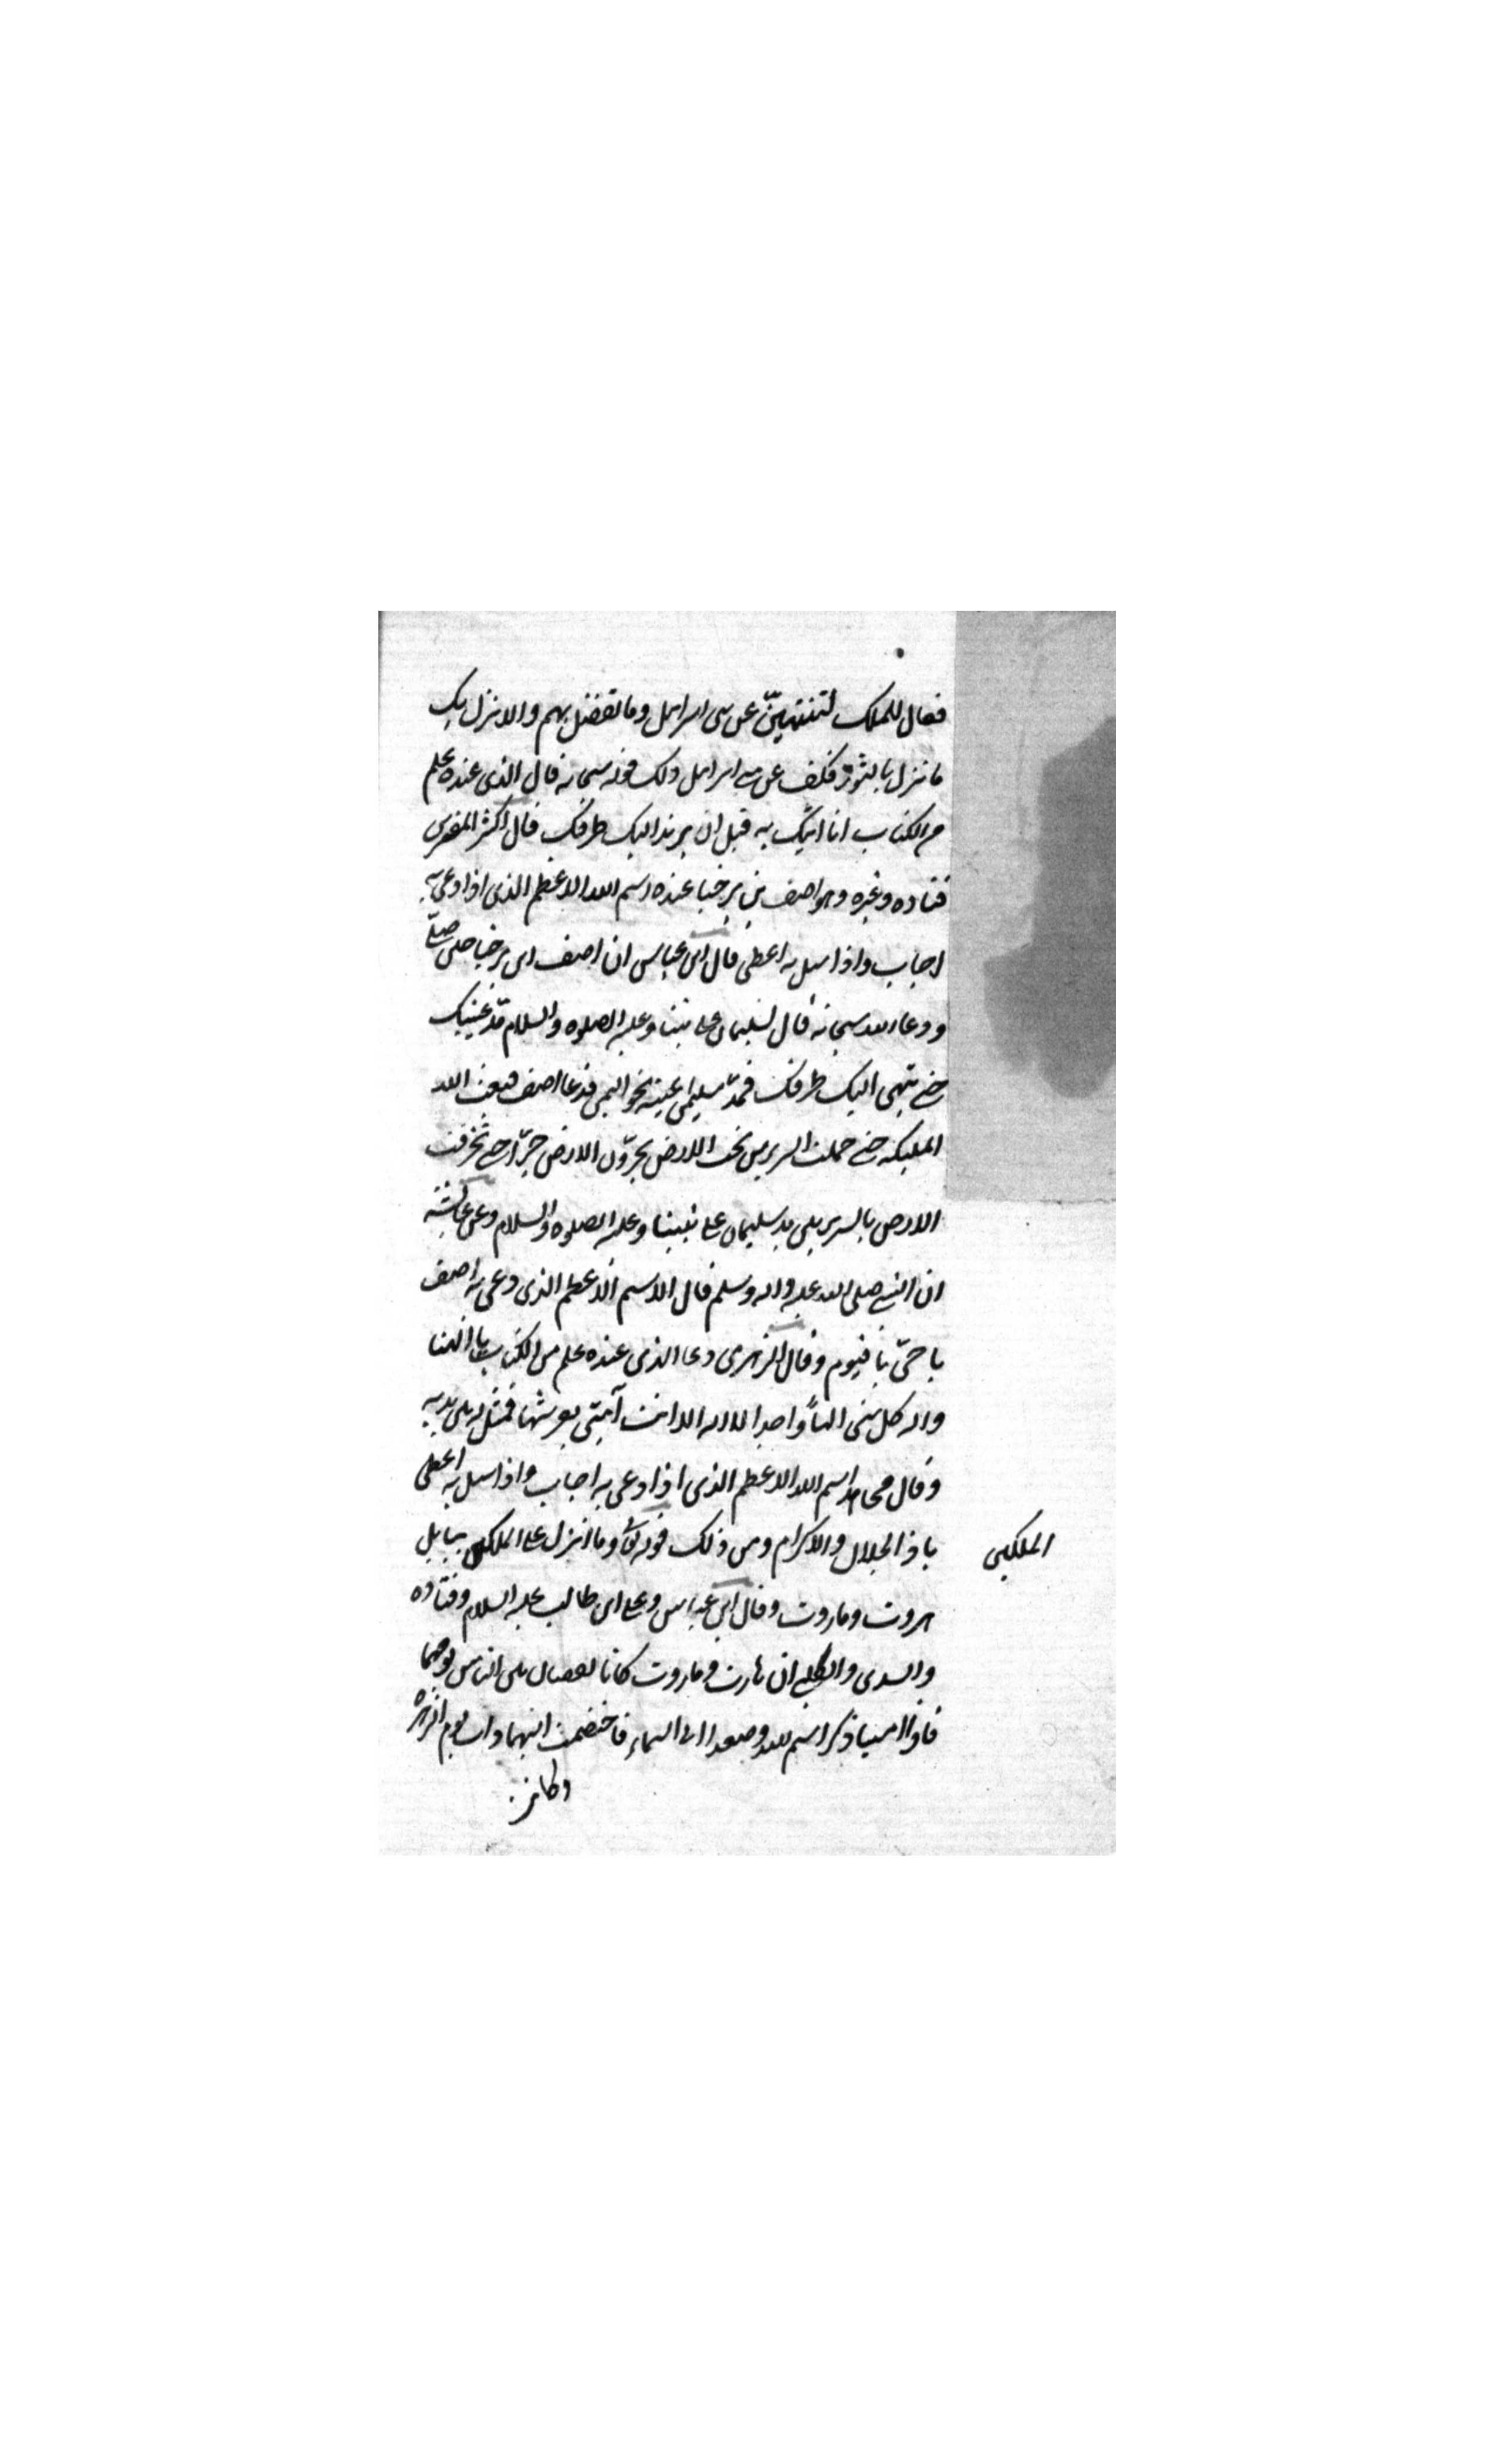 فقال للملك لتنتهينّ عن بنى اسرايل وما تفضل بهم والا نزل بك
ما نزل بالثور فكف عن بنى اسرايل ذلك قوله سبحانه قال الذى عنده علم
من الكتاب انا اتيك به قبل ان يرتد اليك طرفك قال اكثر المفسرين
قتاده وغيره وهو اصف بن برخيا عنده اسم الله الاعظم الذى اذا دعى به
اجاب واذا سئل به اعطى قال ابن عباس ان اصف ابن برخيا حين صلّى
ودعا الله سبحانه قال لسليمان على نبينا وعليه الصلوه والسلام مدّ عينيك
حتى ينتهى اليك طرفك فمدّ سليمن عينيه نحو اليمن فدعا اصف فبعث الله
المليكه حتى حملت السرير من تحت الارض يجرّون الارض جرّا حتى تخرقت
الارض بالسرير بين يد سليمان على نبينا وعليه الصلوه والسلام وعن عائشه
ان النبى صلى الله عليه واله وسلم قال الاسم الاعظم الذى دعى به اصف
يا حىّ يا قيوم وقال الزهرى دعا الذى عنده علم من الكتاب يا الهنا
واله كل شى الهاً واحدا لا اله الا انت آيتنى بعرشها فمثل له بين يديه
وقال مجاهد اسم الله الاعظم الذى اذا دعى به اجاب واذا سئل به اعطى
يا ذا الجلال والاكرام ومن ذلك قوله تعالى وما انزل على الملكين ببابل
هروت وماروت وقال ابن عباس وعلى ابن طالب عليه السلام وقتاده
والسدى والكلبى ان هارت وماروت كانا يقضيان بين الناس يومهما
فاذا امسيا ذكرا اسم الله وصعدا الى السماء فاختصمت اليهما ذات يوم الزهره
وكانت
الملكين